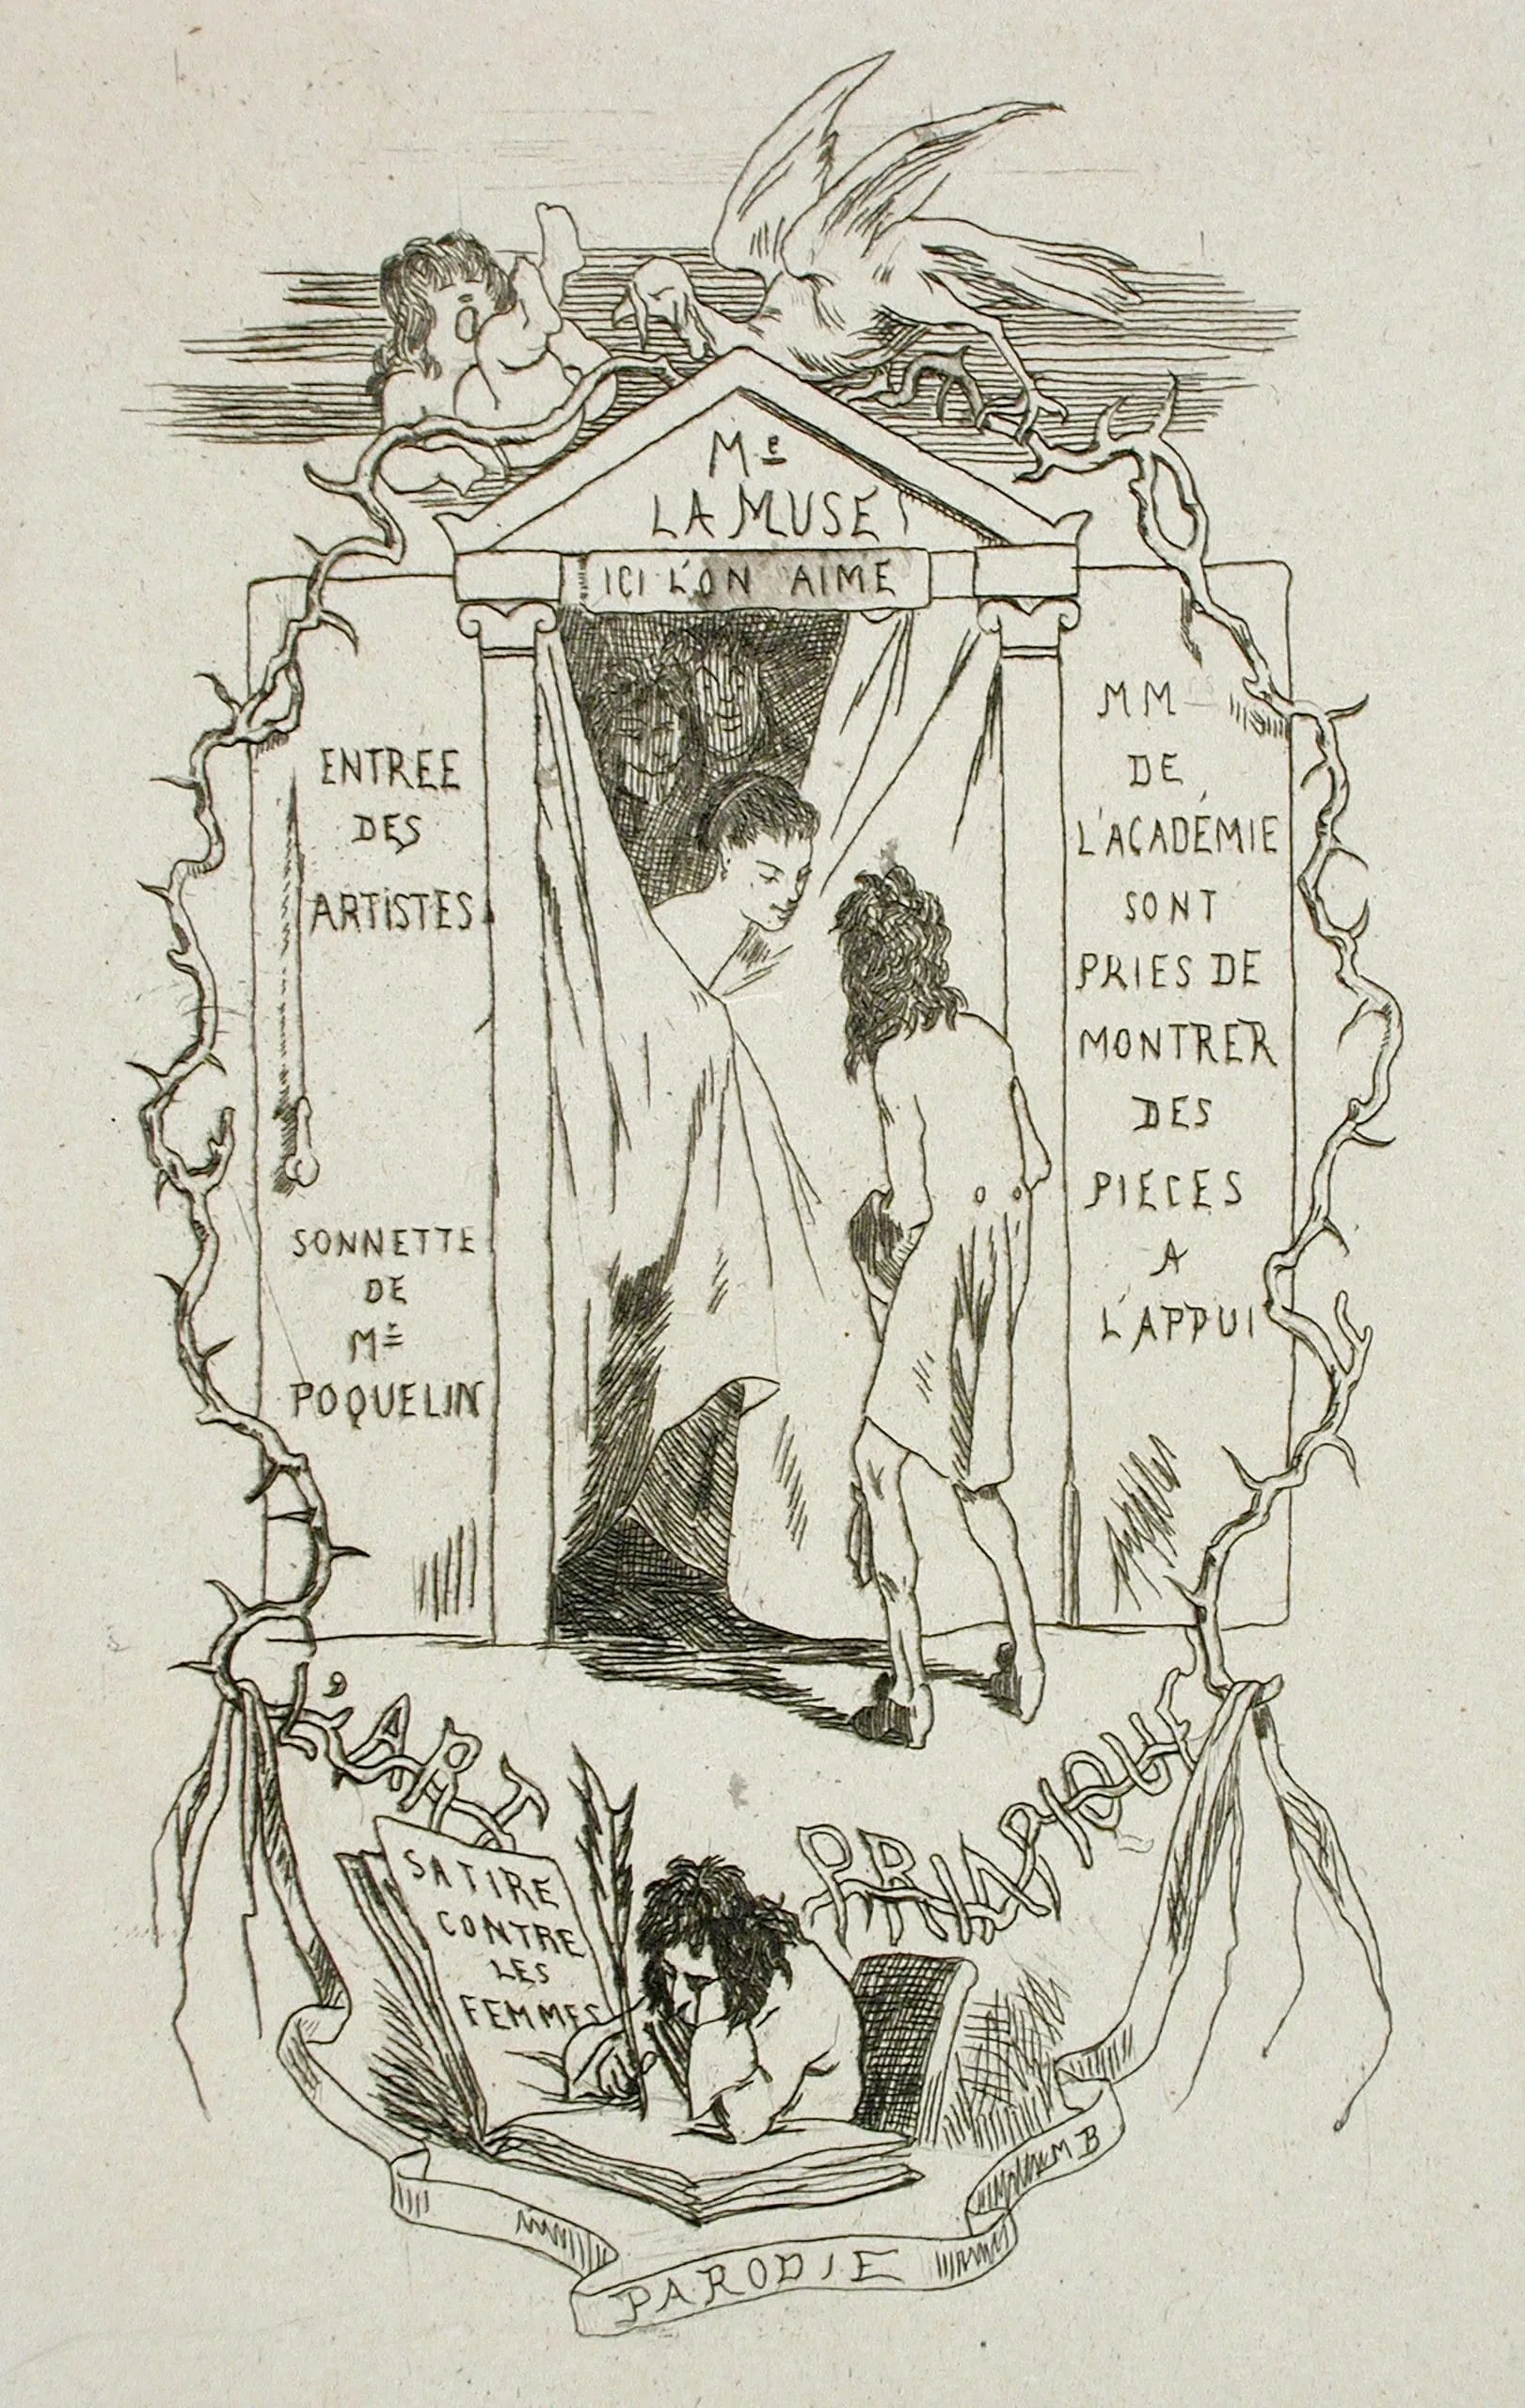 Me
LA MUSE
ICI L'ON AIME
ENTREE
DES
ARTISTES
SONNETTE
DE
Mr
POQUELIN
MM
DE
L'ACADÉMIE
SONT
PRIES DE
MONTRER
DES
PIECES
A
L'APPUI
L'ART PRIAPIQUE
SATIRE
CONTRE
LES
FEMMES
MB
PARODIE